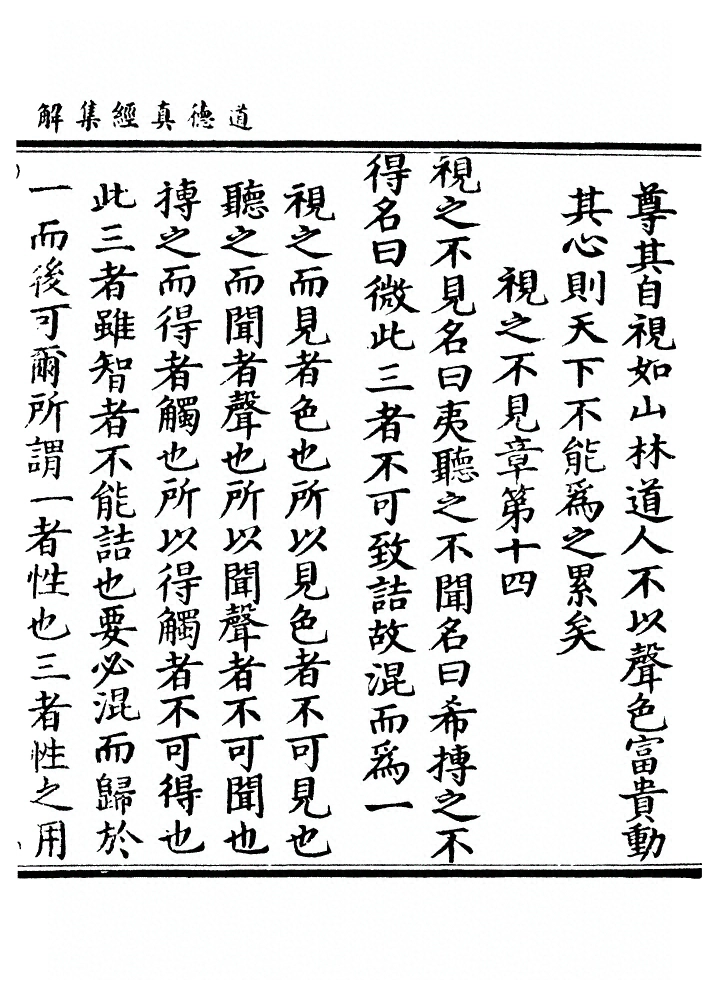 道德真經集解
尊其自視如山林道人不以聲色富貴動
其心則天下不能爲之累矣
視之不見章第十四
視之不見名曰夷聽之不聞名曰希摶之不
得名曰微此三者不可致詰故混而爲一
視之而見者色也所以見色者不可見也
聽之而聞者聲也所以聞聲者不可聞也
摶之而得者觸也所以得觸者不可得也
此三者雖智者不能詰也要必混而歸於
一而後可爾所謂一者性也三者性之用